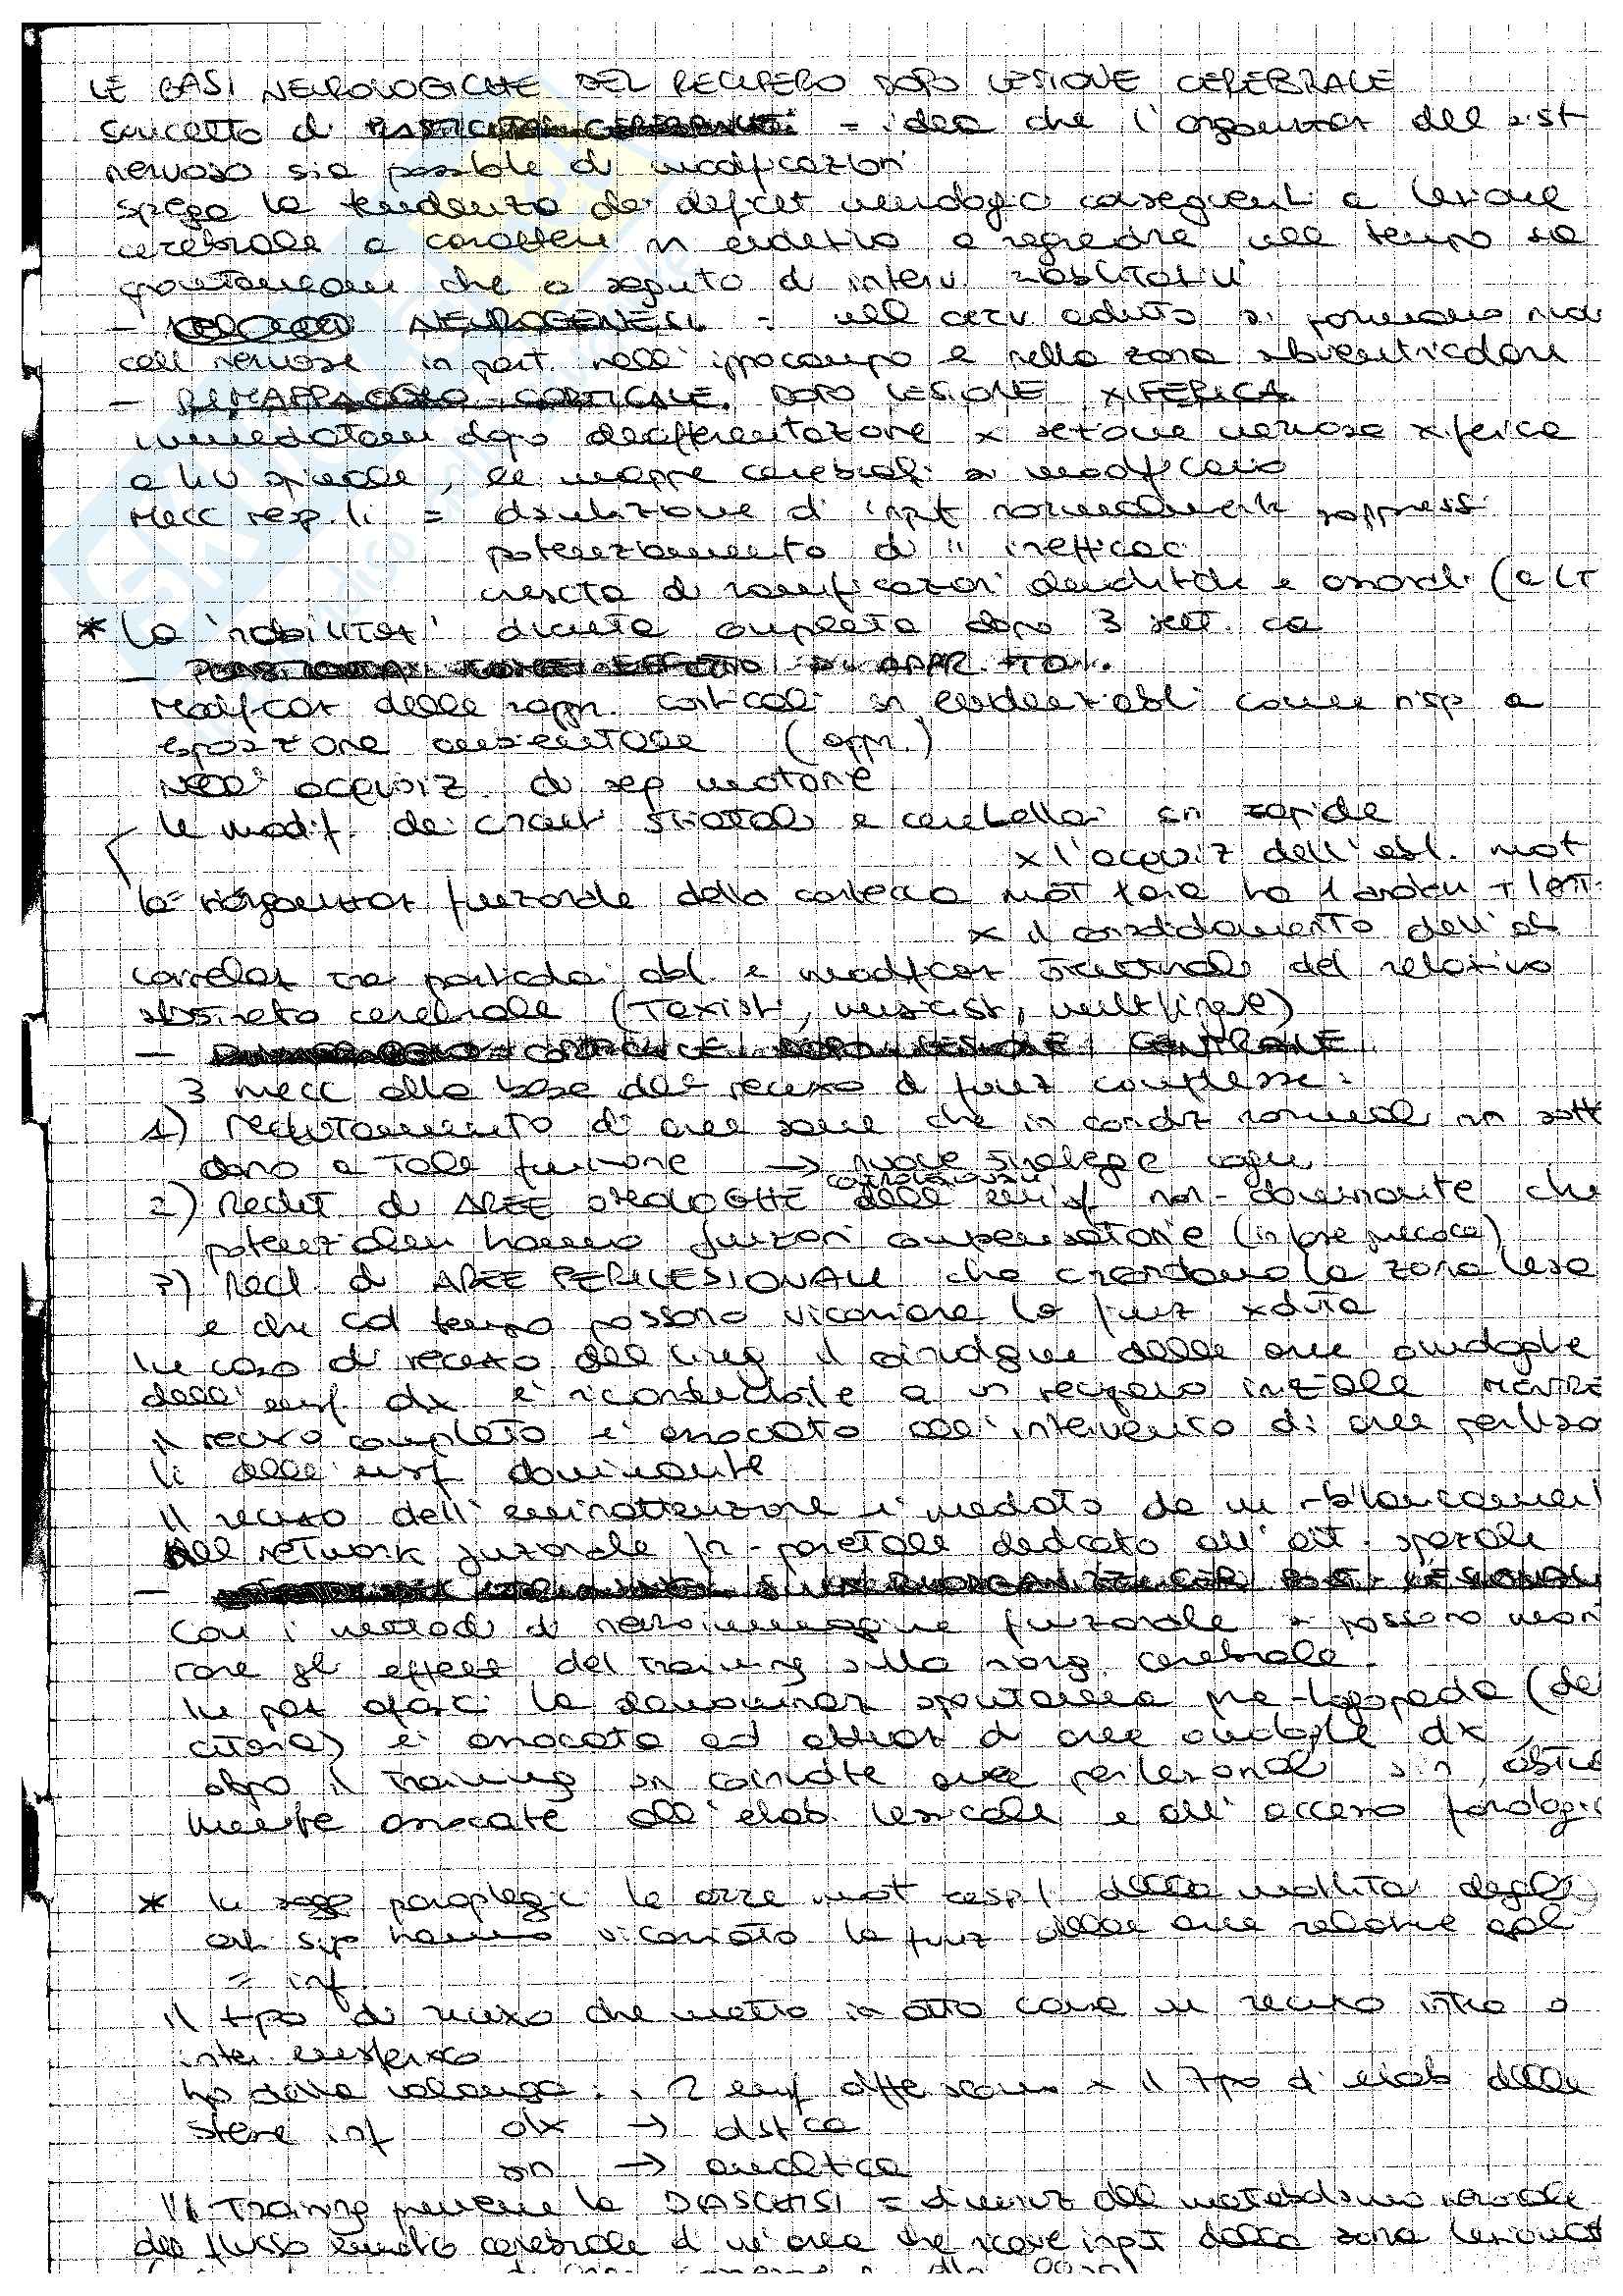 LE BASI NEUROLOGICHE DEL RECUPERO DOPO LESIONE CEREBRALE
concetto di PLASTICITÀ CEREBRALE = idea che l'organizzaz del sist
nervoso sia possibile di modificazioni
spiega la tendenza dei deficit neurologici conseguenti a lesione
cerebrale a carattere n evolutivo a regredire nel tempo sia
spontaneam che a seguito di interv riabilitativi
- NEUROGENESI = nell cerv adulto si formano
cell nervose in part. nell'ippocampo e nella zona subventricolare
- RIMAPPAGGIO CORTICALE DOPO LESIONE XIFERICA
immediatam dopo deafferentazione x lesione nervosa xiferica
a liv spinale, le mappe cerebrali si modificano
Mecc resp.li = disinibizione di input normalmente soppressi
potenziamento di " inefficaci
crescita di ramificazioni dendritiche e assonali (a LT
* La 'riabilitaz' diventa completa dopo 3 sett. ca
- PLASTICITÀ COME EFFETTO DI APPR.
Modificaz delle rappr. corticali sn evidenziabili come risp a
esposizione ambientale (appr.)
Nell' acquisiz. di seq motorie
le modif. dei circuiti striatali e cerebellari sn rapide
x l'acquisiz dell'abil. mot
la riorganizzaz funzionale della corteccia mot 1aria ha 1 andam + lent
x il consolidamento dell'ab
correlaz tra particolari abil. e modificaz strutturali del relativo
substrato cerebrale (Taxisti, musicisti, multilingue)
- CORTICALE DOPO LESIONE CENTRALE
3 mecc alla base del recupero di funz complesse:
1) reclutamento di aree sane che in condiz normali nn sott
dono a tale funzione → nuove strategie cogn
2) Reclut di AREE OMOLOGHE controlaterali dell'emisf non-dominante che
potenzialm hanno funzioni compensatorie (in fase precoce)
3) Recl. di AREE PERILESIONALI che circondano la zona lesa
e che col tempo possono vicariare la funz xduta
In caso di recupero del ling il coinvolgim delle aree omologhe
dell'emisf dx è riconducibile a un recupero iniziale MENTRE
il recupero completo è associato all'intervento di aree perileso
li dell'emisf dominante
Il recupero dell'eminattenzione è mediato da un ri-bilanciamen
del network funzionale fr-parietale dedicato all'att. spaziale
- RIORGANIZZ CER POST-LESIONAL
Con i metodi di neuroimmagine funzionale si possono moni
rare gli effetti del training sulla riorg. cerebrale.
In paz afasici la denominaz spontanea pre-logopedia (de
citaria) è associata ad attivaz di aree omologhe dx,
dopo il training sn coinvolte aree perilesionali sin,
mente associate all'elab. lessicale e all'accesso fonologic
* In sogg paraplegici le aree mot resp.li della mobilità degli
arti sup hanno vicariato la funz delle aree relative agli
= inf.
il tipo di recupero che metto in atto come un recupero intra o
inter emisferico
ha delle valenze: i 2 emisf differiscono x il tipo di elab delle
stesse inf dx → olistica
sn → analitica
Il training previene la DIASCHISI = diminuz del metabolismo neuronale
del flusso ematico cerebrale di un'area che riceve input dalla zona lesionata